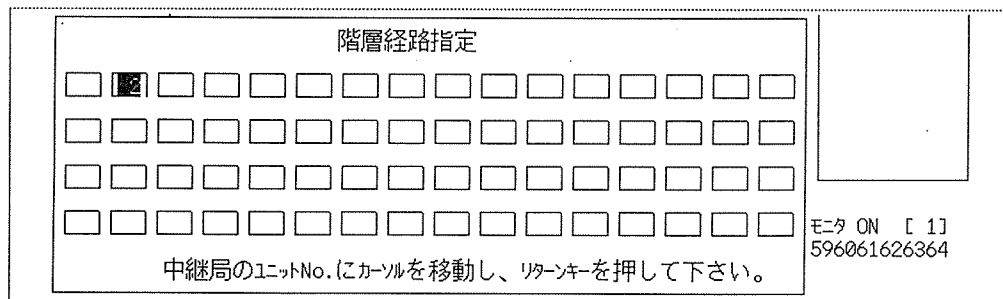 階層経路指定
2
中継局のﾕﾆｯﾄNo.にｶｰｿﾙを移動し、ﾘﾀｰﾝｷｰを押して下さい。
ﾓﾆﾀ ON [ 1]
596061626364